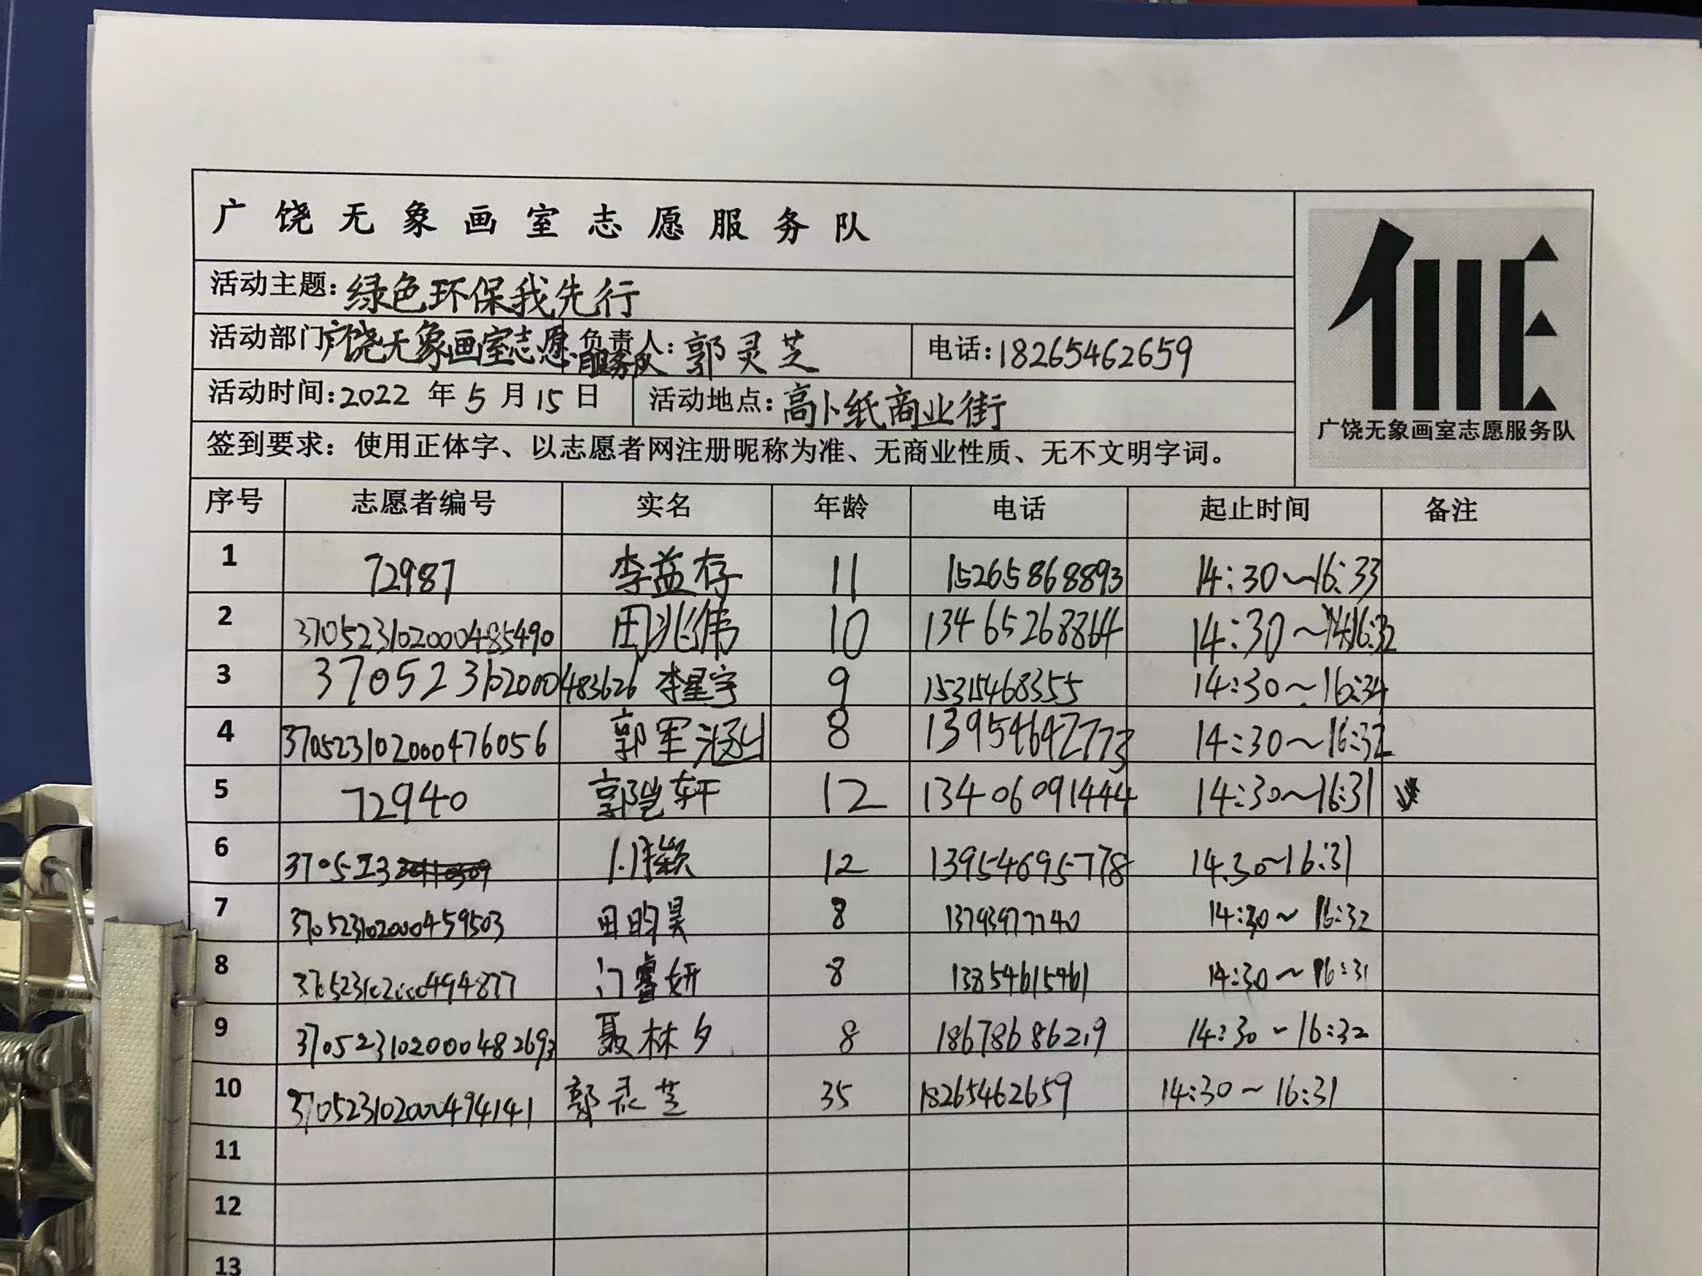 广饶无象画室志愿服务队
活动主题:绿色环保我先行
活动部门广饶无象画室志愿服务队 负责人:郭灵芝 电话:18265462659
活动时间:2022年5月15日 活动地点:高卜纸商业街
广饶无象画室志愿服务队
签到要求:使用正体字、以志愿者网注册昵称为准、无商业性质、无不文明字词。
序号 志愿者编号 实名 年龄 电话 起止时间 备注
1 72987 李益存 11 15265868893 14:30~16:33
2 370523102000485490 田兆伟 10 13465268864 14:30~16:32
3 370523102000483626 李星宇 9 15315468355 14:30~16:34
4 370523102000476056 郭军 8 13954642773 14:30~16:32
5 72940 郭恺轩 12 13406091444 14:30~16:31
6 370523 12 13954695778 14:30~16:31
7 370523102000459503 田昀昊 8 13793977740 14:30~16:32
8 370523102000494877 门睿妍 8 13854615461 14:30~16:31
9 370523102000482693 聂林夕 8 18678686219 14:30-16:32
10 370523102000494141 郭灵芝 35 18265462659 14:30~16:31
11
12
13